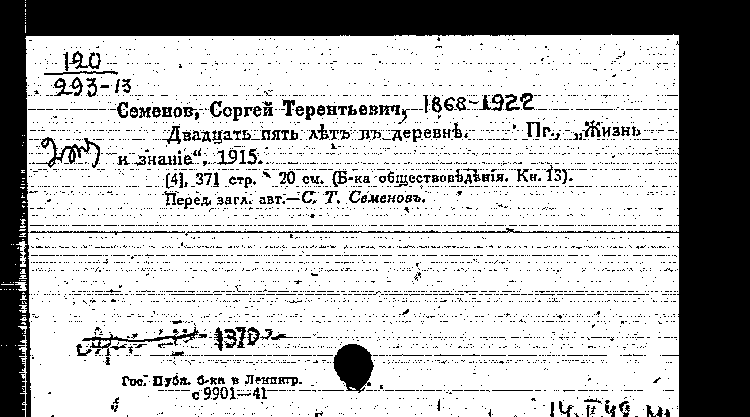 120
293-13
Семенов, Сергей Терентьевич, 1868-1922
Двадцать пять лѣтъ въ деревнѣ. Пг., „Жизнь
2 эк
и знаніе“, 1915.
[4], 371 стр. 20 см. (Б-ка обществовѣдѣнія. Кн. 13).
Перед загл. авт.—С. Т. Семеновъ.
1370
Гос. Публ. б-ка в Ленингр.
с 9901—41
14. II 49.